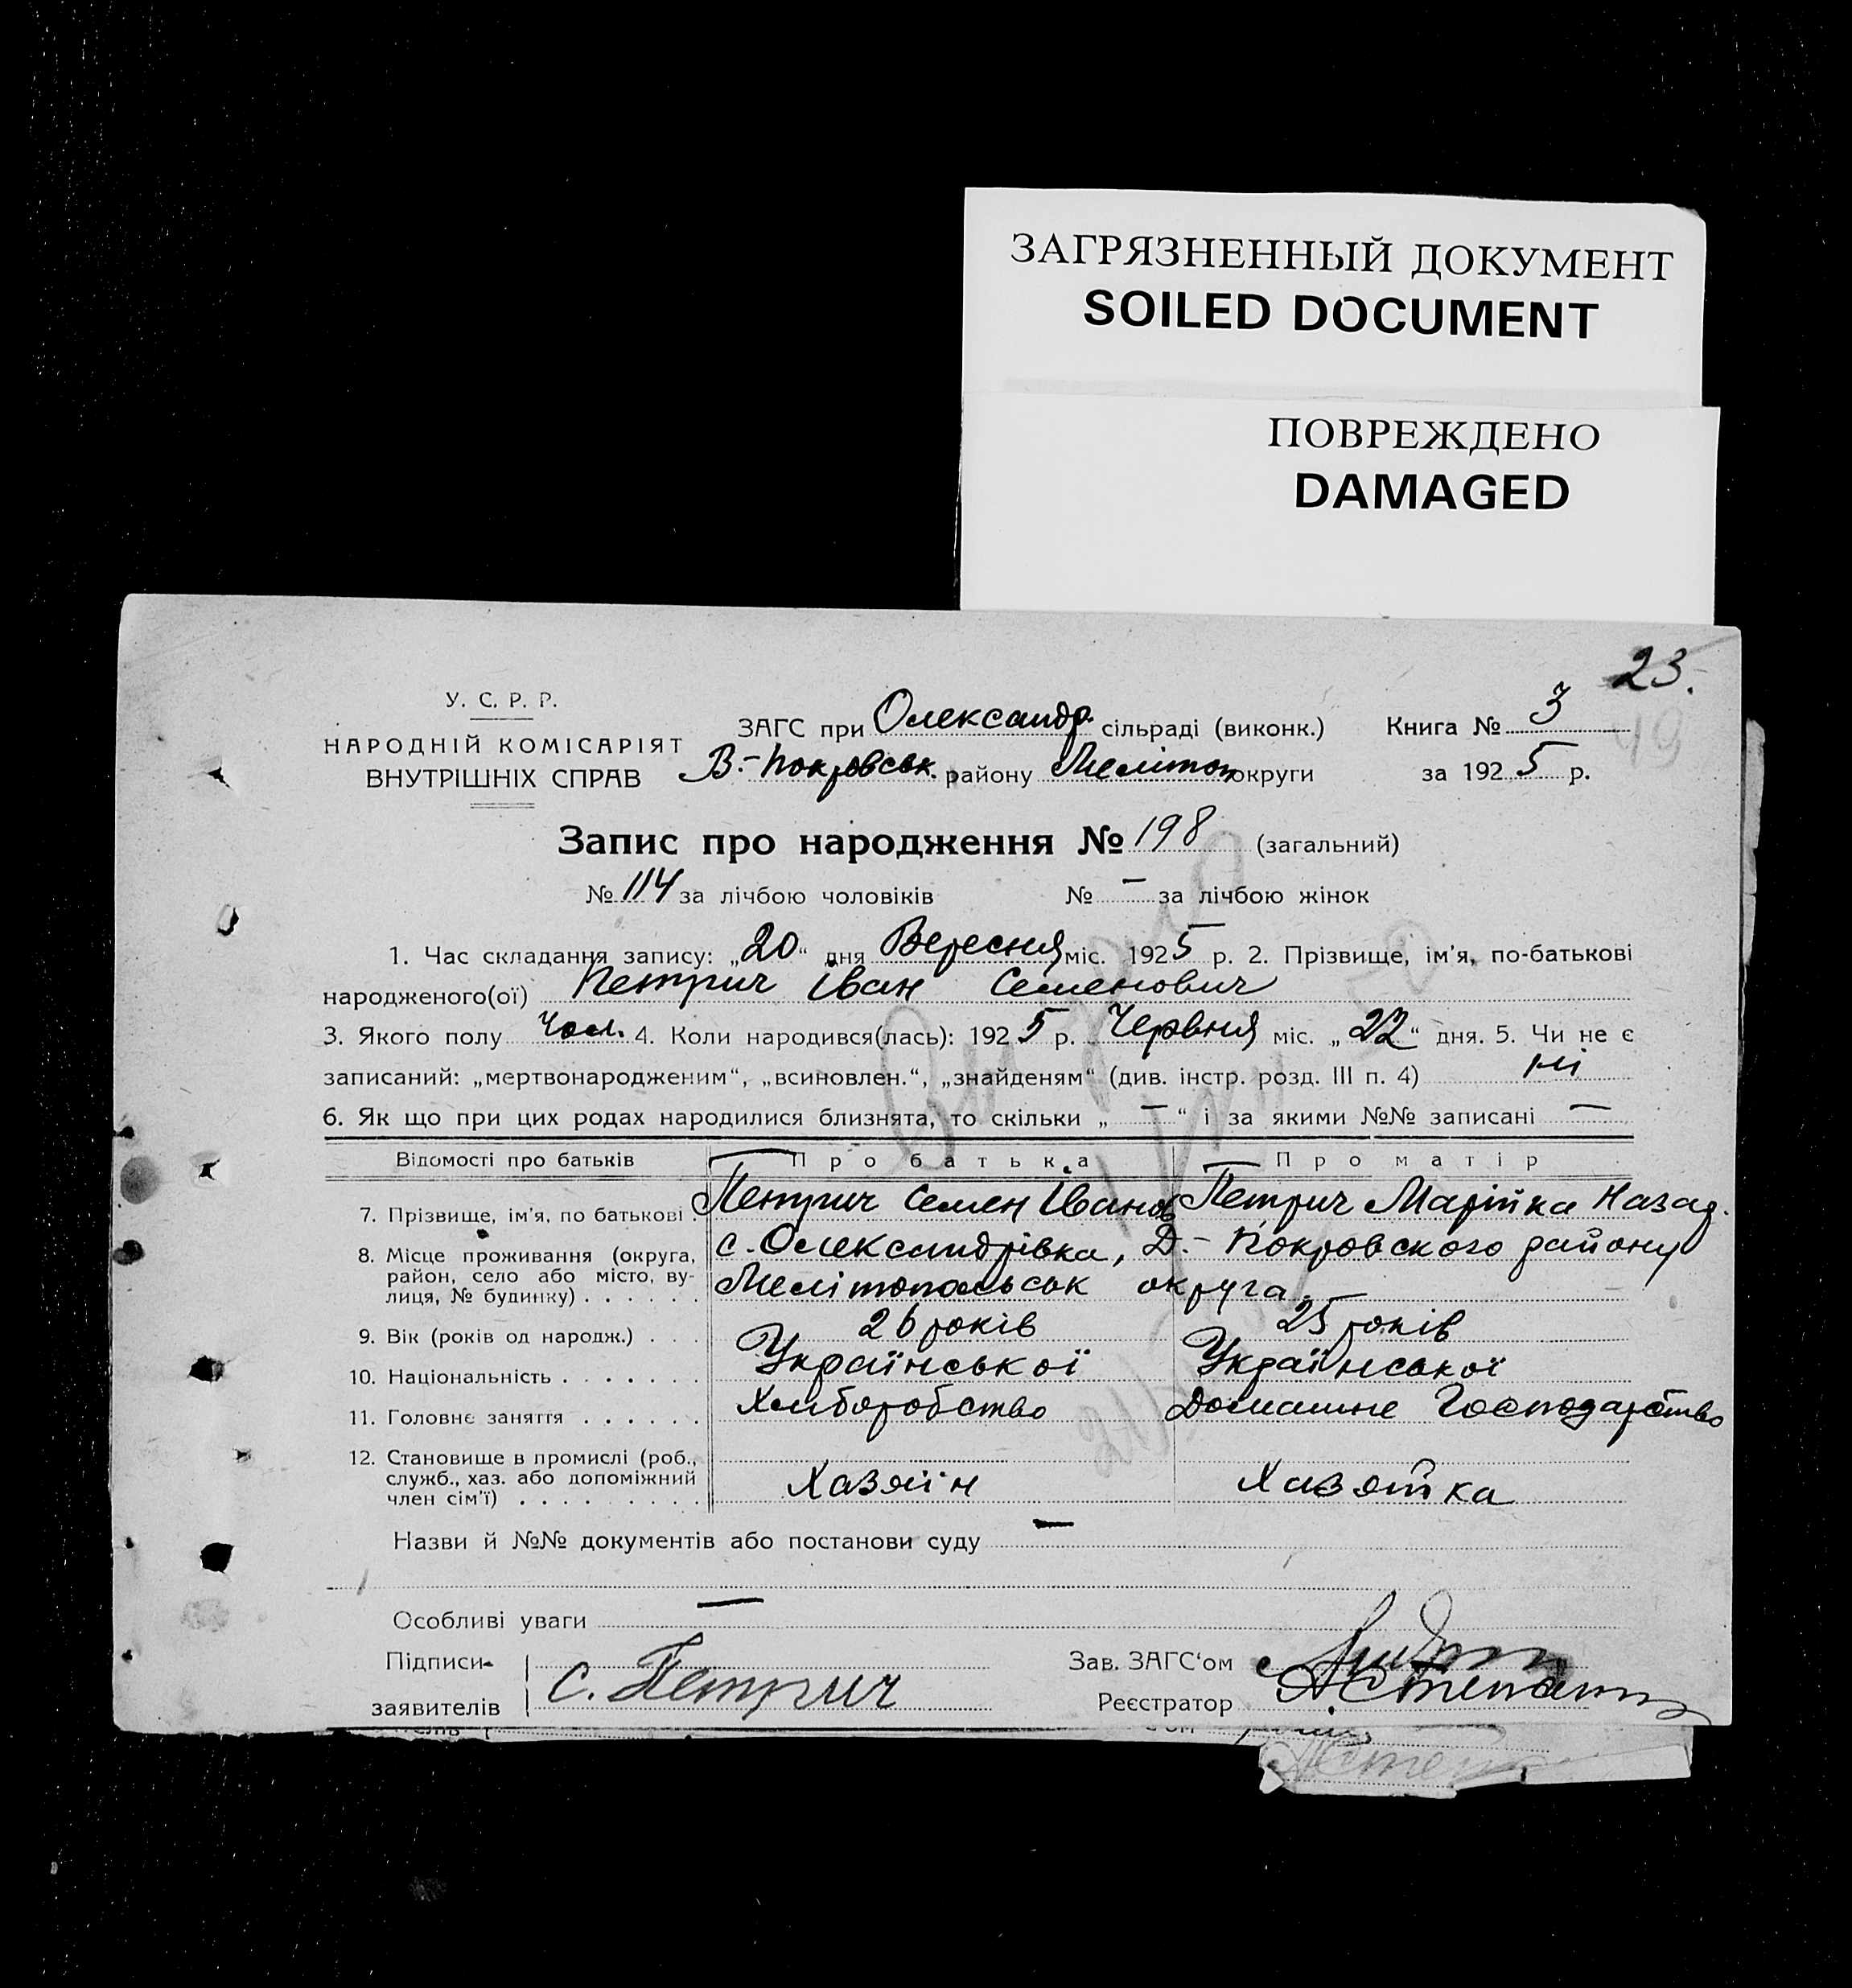 ЗАГРЯЗНЕННЫЙ ДОКУМЕНТ
SOILED DOCUMENT
ПОВРЕЖДЕНО
DAMAGED
23.
У. С. Р. Р.
НАРОДНІЙ КОМІСАРІЯТ
ВНУТРІШНІХ СПРАВ
ЗАГС при Олександр. сільраді (виконк.) Книга № 3
19
В.-Покровськ. району Мелітоп округи за 1925 р.
Запис про народження № 198 (загальний)
№ 114 за лічбою чоловіків № — за лічбою жінок
1. Час складання запису: „20“ дня Вересня міс. 1925 р. 2. Прізвище, ім'я, по-батькові
народженого(ої) Петрич Іван Семенович
3. Якого полу Чол. 4. Коли народився(лась): 1925 р. Червня міс. „22“ дня. 5. Чи не є
записаний: „мертвонародженим“, „всиновлен.“, „знайденям“ (див. інстр. розд. III п. 4) ні
6. Як що при цих родах народилися близнята, то скільки „—“ і за якими №№ записані —
Відомості про батьків Про батька Про матір
7. Прізвище, ім'я, по батькові . Петрич Семен Іванов Петрич Марійка Назар.
8. Місце проживання (округа, район, село або місто, вулиця, № будинку) . . . . . . с. Олександрівка, В.-Покровского району
Мелітопольськ округа.
9. Вік (років од народж.) . . 26 років 25 років
10. Національність . . . . . . . Української Української
11. Головне заняття . . . . . . Хліборобство Домашнє Господарство
12. Становище в промислі (роб., служб., хаз. або допоміжний член сім'ї) . . . . . . . . . Хазяїн Хазяйка
Назви й №№ документів або постанови суду —
Особливі уваги —
Підписи заявителів С. Петрич
Зав. ЗАГС'ом
Реєстратор